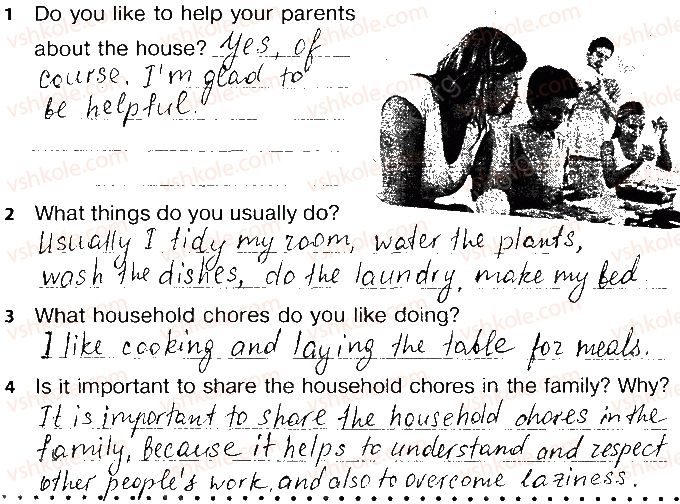 1 Do you like to help your parents
about the house? Yes, of
course. I'm glad to
be helpful.
2 What things do you usually do?
Usually I tidy my room, water the plants,
wash the dishes, do the laundry, make my bed
3 What household chores do you like doing?
I like cooking and laying the table for meals.
4 Is it important to share the household chores in the family? Why?
It is important to share the household chores in the
family, because it helps to understand and respect
other people's work, and also to overcome laziness.